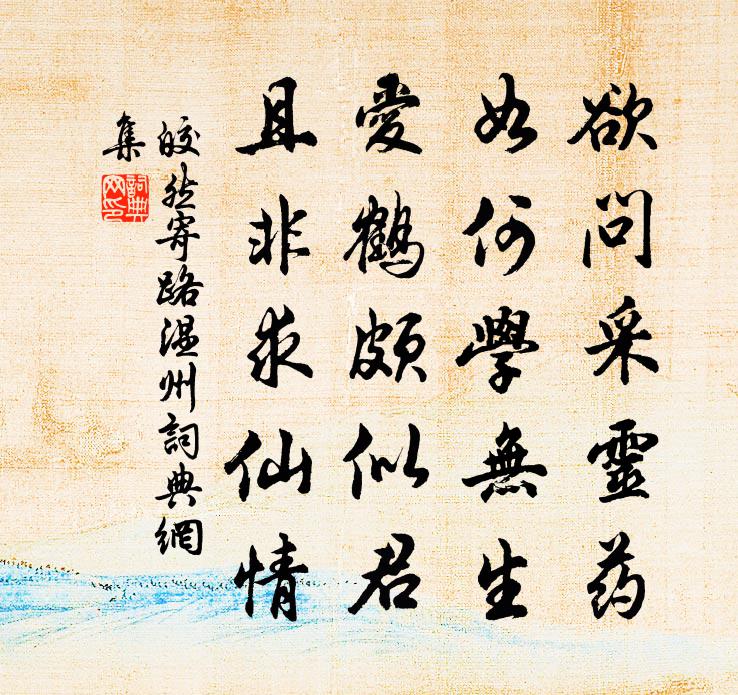 欲问采靈药
如何學無生
愛鶴頗似君
且非求仙情
皎然寄路温州詞典網
集
詞典网印